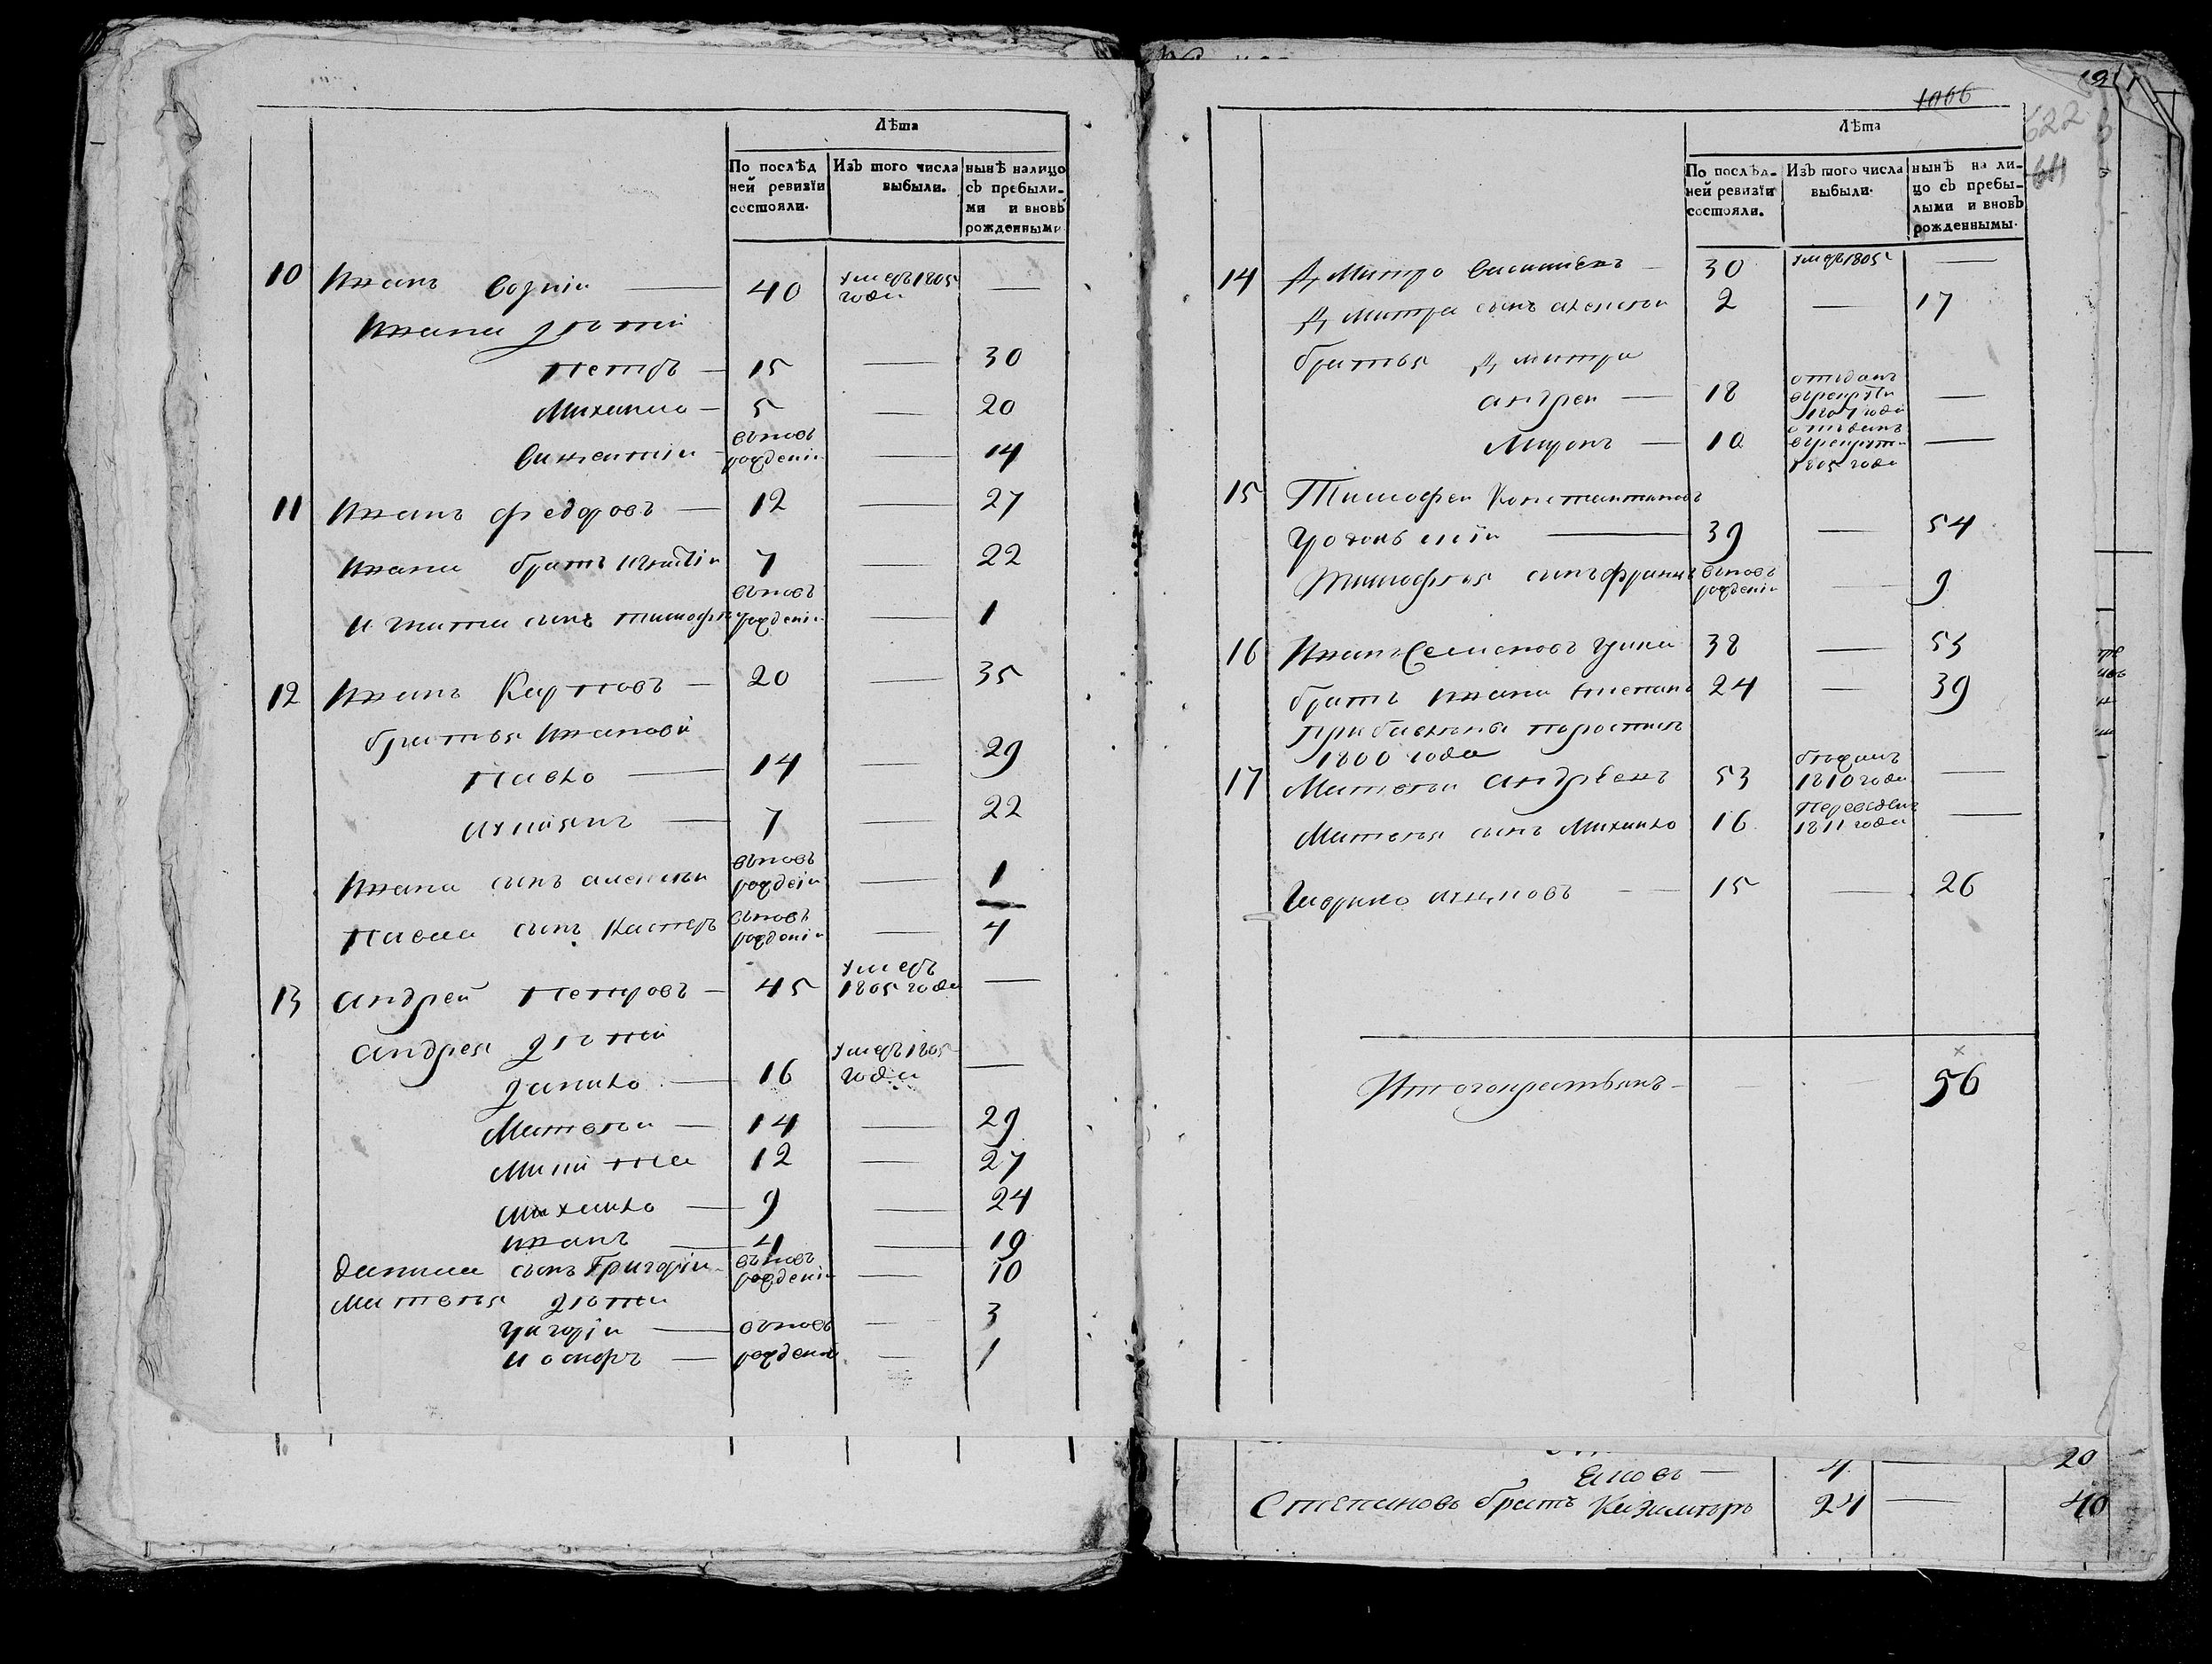 Лѣта
По послѣд
ней ревизїи
состояли.
Изъ того числа
выбыли.
нынѣ налицо
съ прибыли-
ми и вновь
рожденными
10 Иванъ 40 умеръ 1805
года —
Ивана дѣти
Петръ — 15 — 30
Михаило — 5 — 20
Викентiи вновь
рожденiи — 14
11 Иванъ Федоровъ — 12 — 27
Ивана братъ Игнатiи 7 — 22
Игната сынъ Тимофеи вновь
рожденiи — 1
12 Иванъ Карповъ — 20 — 35
братья Ивановы
Павло — 14 — 29
7 — 22
Ивана сынъ Алексеи вновь
рожденiи — 1
Павла сынъ Касперъ вновь
рожденiи — 4
13 Андрей Петровъ — 45 умеръ
1805 года —
Андрея дѣти
Данило — 16 умеръ 1805
года —
Матвеи — 14 — 29
12 — 27
Михаило — 9 — 24
Иванъ — 4 — 19
Данила сынъ Григорiи вновь
рожденiи — 10
Матвея дѣти
Григорiи — вновь — 3
Иосифъ — рожденiи — 1
1066
622
Лѣта
По послѣд-
ней ревизїи
состояли.
Изъ того числа
выбыли.
нынѣ на ли-
цо съ прибы-
лыми и вновь
рожденными.
14 Дмитро — 30 умеръ 1805 —
Дмитра сынъ Алексеи 2 — 17
братья Дмитра
Андреи — 18 отданъ
в рекруты
года —
Миронъ — 10 отданъ
в рекруты
1805 года —
15 Тимофеи Константиновъ
39 — 54
Тимофея сынъ Францъ вновь
рожденiи — 9
16 Иванъ Семеновъ 38 — 53
братъ Ивана Степанъ 24 — 39
1800 года
17 Матвеи Андреевъ 53 бѣжалъ
1810 года —
Матвея сынъ Михаило 16 переведенъ
1811 года —
Гаврило — 15 — 26
Итого крестьянъ — 56
4 — 20
Степановъ братъ Казимѣръ 24 — 40